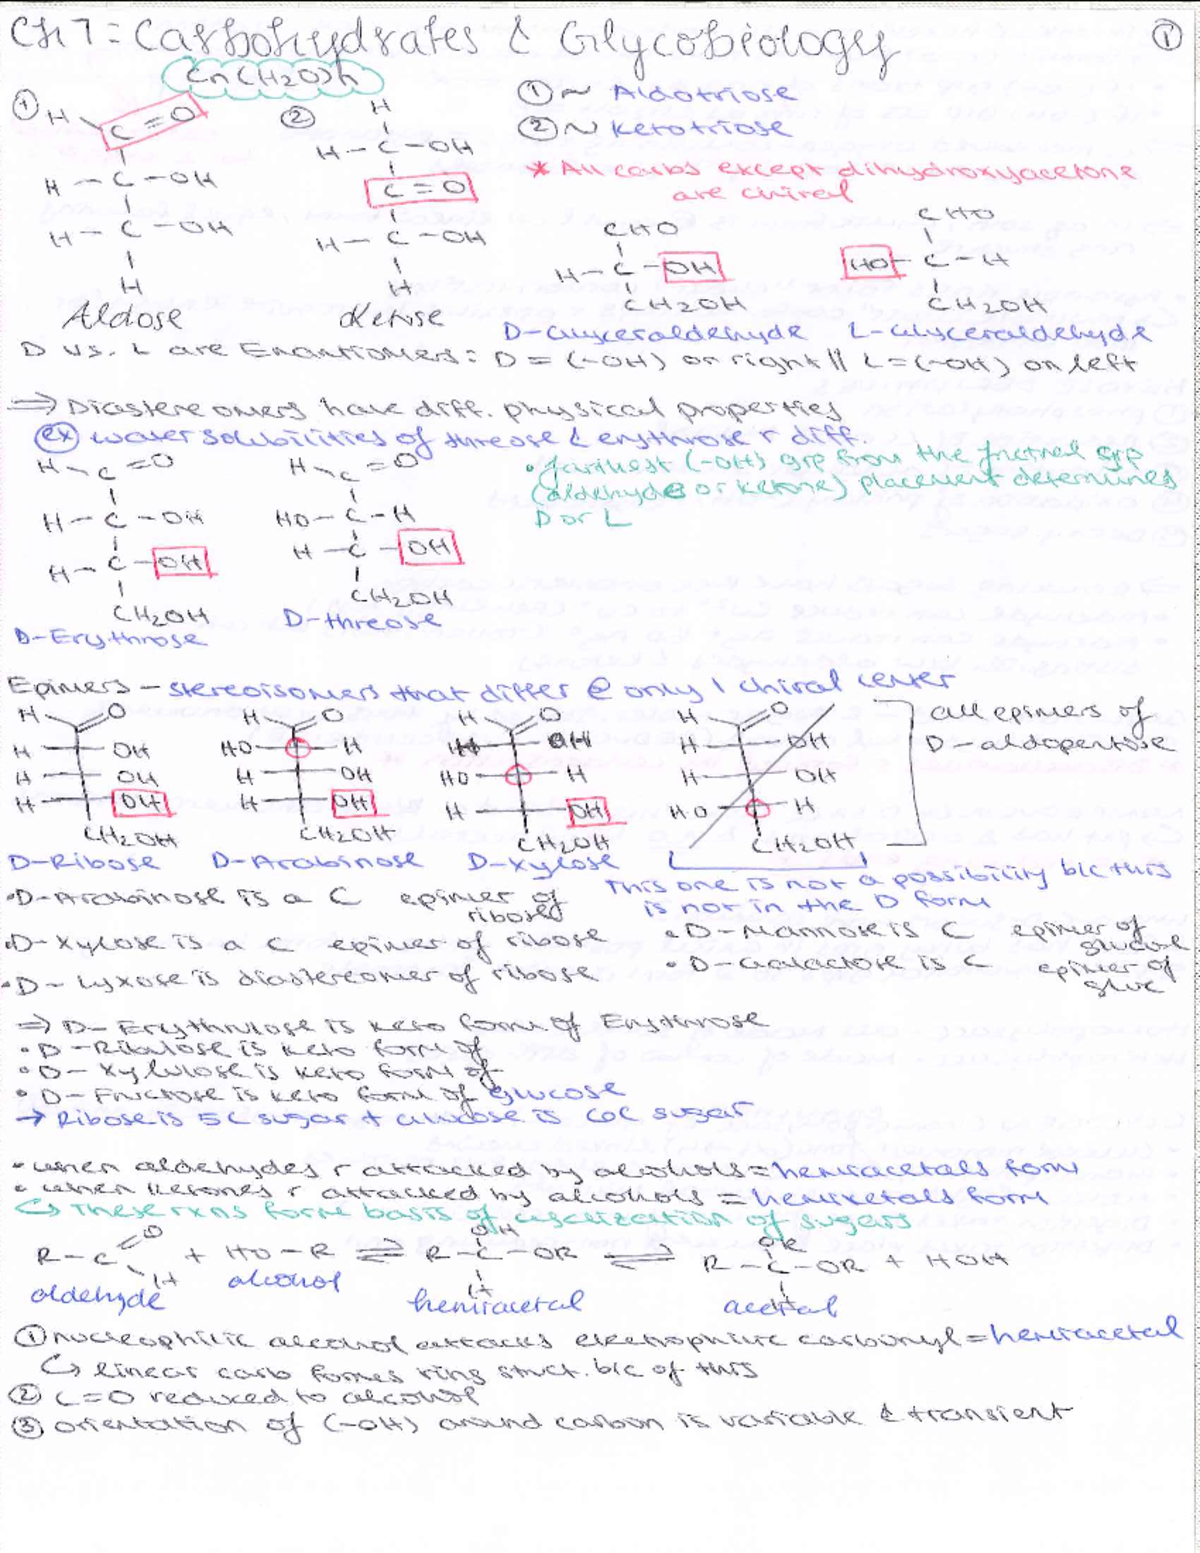 Ch 7: Carbohydrates & Glycobiology ①
Cn(H2O)n
① ~ Aldotriose
② ~ Ketotriose
* All carbs except dihydroxyacetone
are chiral
① H
C=O
H-C-OH
H-C-OH
H
Aldose
② H
H-C-OH
C=O
H-C-OH
H
Ketose
CHO
H-C-OH
CH2OH
D-Glyceraldehyde
CHO
HO-C-H
CH2OH
L-Glyceraldehyde
D vs. L are Enantiomers: D = (-OH) on right || L = (-OH) on left
⇒ Diastereomers have diff. physical properties
ex water solubilities of threose & erythrose r diff.
H-C=O
H-C-OH
H-C-OH
CH2OH
D-Erythrose
H-C=O
HO-C-H
H-C-OH
CH2OH
D-threose
• farthest (-OH) grp from the fnctnal grp
(aldehyde or ketone) placement determines
D or L
Epimers - stereoisomers that differ @ only 1 chiral center
H O
H OH
H OH
H OH
CH2OH
D-Ribose
H O
HO H
H OH
H OH
CH2OH
D-Arabinose
H O
H OH
HO H
H OH
CH2OH
D-Xylose
H O
H OH
H OH
HO H
CH2OH
all epimers of
D-aldopentose
This one is not a possibility b/c this
is not in the D form
• D-Arabinose is a C epimer of
ribose
• D-Xylose is a C epimer of ribose
• D-Lyxose is diastereomer of ribose
• D-Mannose is C epimer of
glucose
• D-Galactose is C epimer of
gluc
⇒ D-Erythrulose is keto form of Erythrose
• D-Ribulose is keto form of
• D-Xylulose is keto form of
• D-Fructose is keto form of glucose
→ Ribose is 5C sugar + Glucose is 6C sugar
• when aldehydes r attacked by alcohols = hemiacetals form
• when ketones r attacked by alcohols = hemiketals form
↳ These rxns form basis of cyclization of sugars
R-C=O H + HO-R ⇌ R-C-OR OH H ⇌ R-C-OR OR H + HOH
aldehyde alcohol hemiacetal acetal
① nucleophilic alcohol attacks electrophilic carbonyl = hemiacetal
↳ linear carb formes ring struct. b/c of this
② C=O reduced to alcohol
③ orientation of (-OH) around carbon is variable & transient